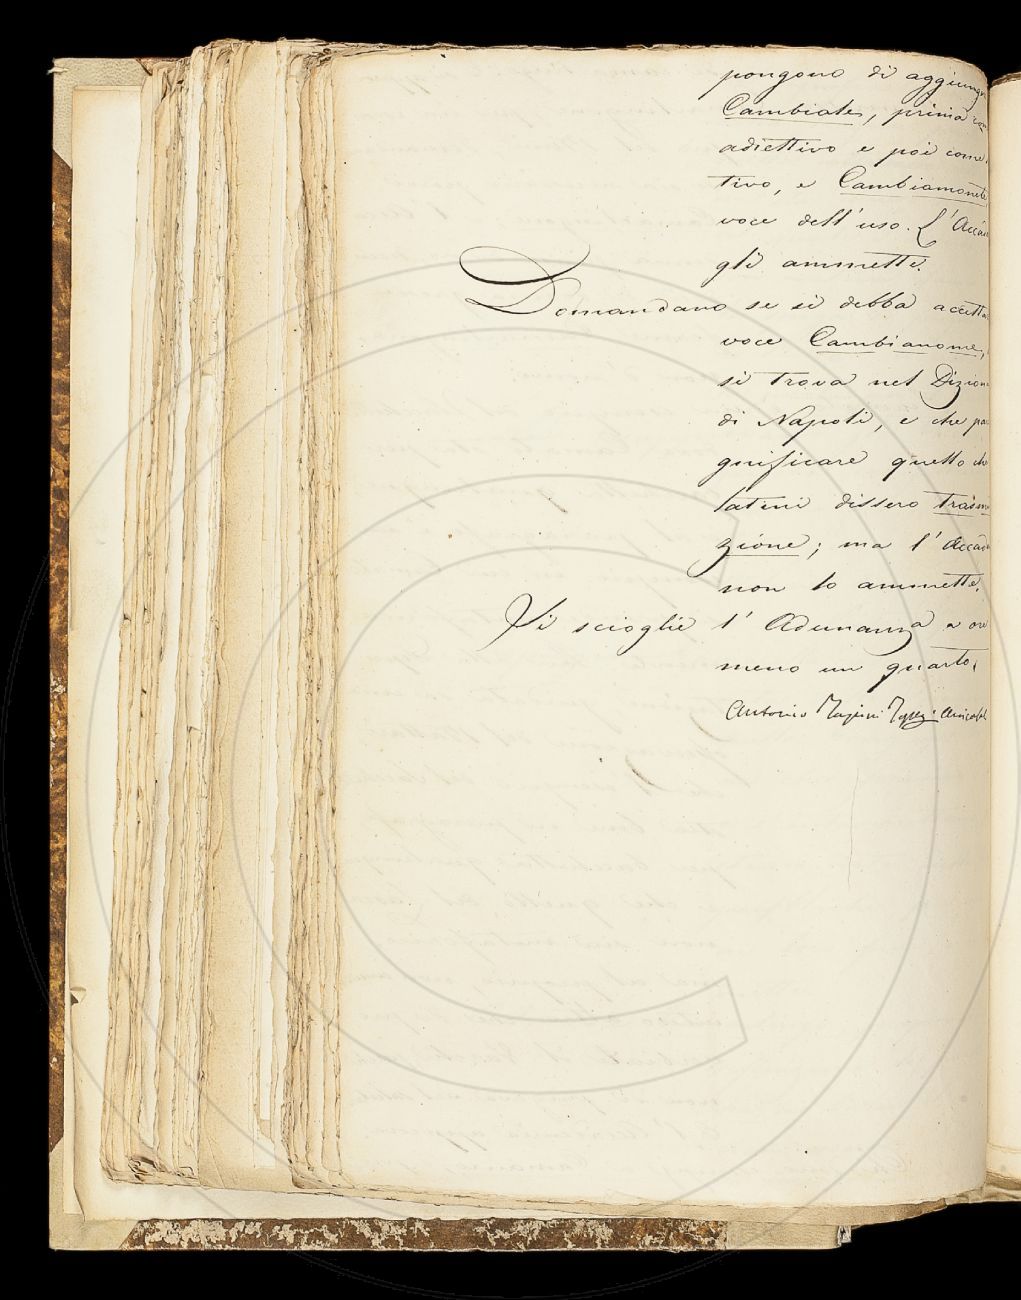 pongono di aggiung
Cambiale, prima
adiettivo e poi come
tivo, e Cambiamonete
voce dell'uso. L'Acca
gli ammette.
Domandano se si debba accetta
voce Cambianome,
si trova nel Dizion
di Napoli, e che pa
gnificare quello che
latini dissero trasm
zione; ma l'Accad
non lo ammette.
Si scioglie l'Adunanza a ore
meno un quarto.
Antonio